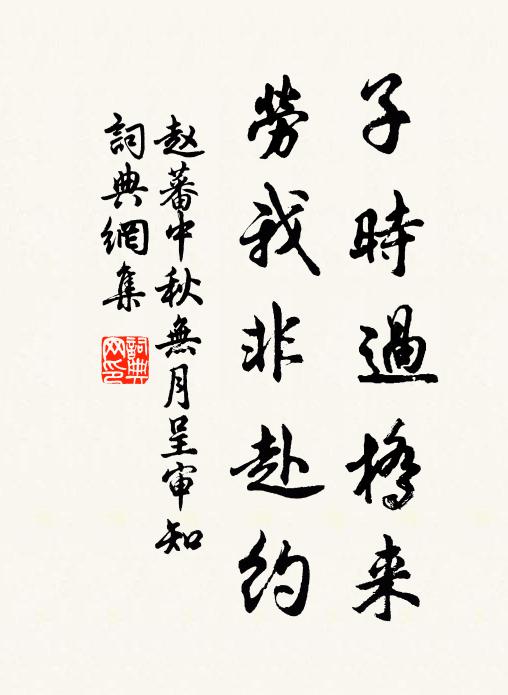 子時過橋来
勞我非赴約
赵蕃中秋無月呈审知
詞典網集
詞典網印